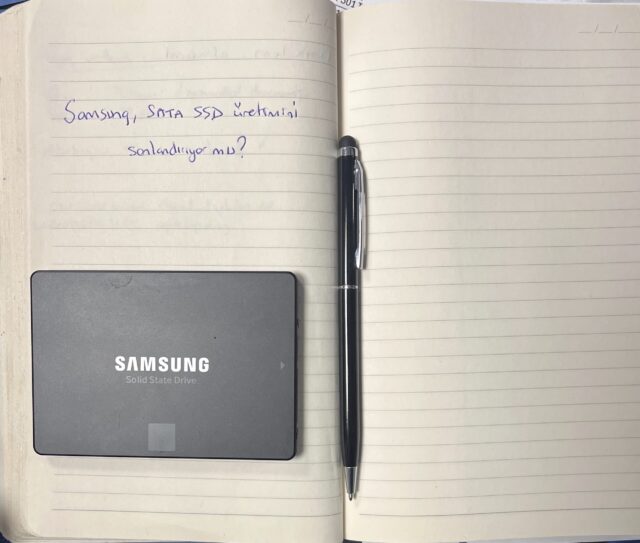 Samsung, SATA SSD üretimini
sonlandırıyor mu?
SAMSUNG
Solid State Drive